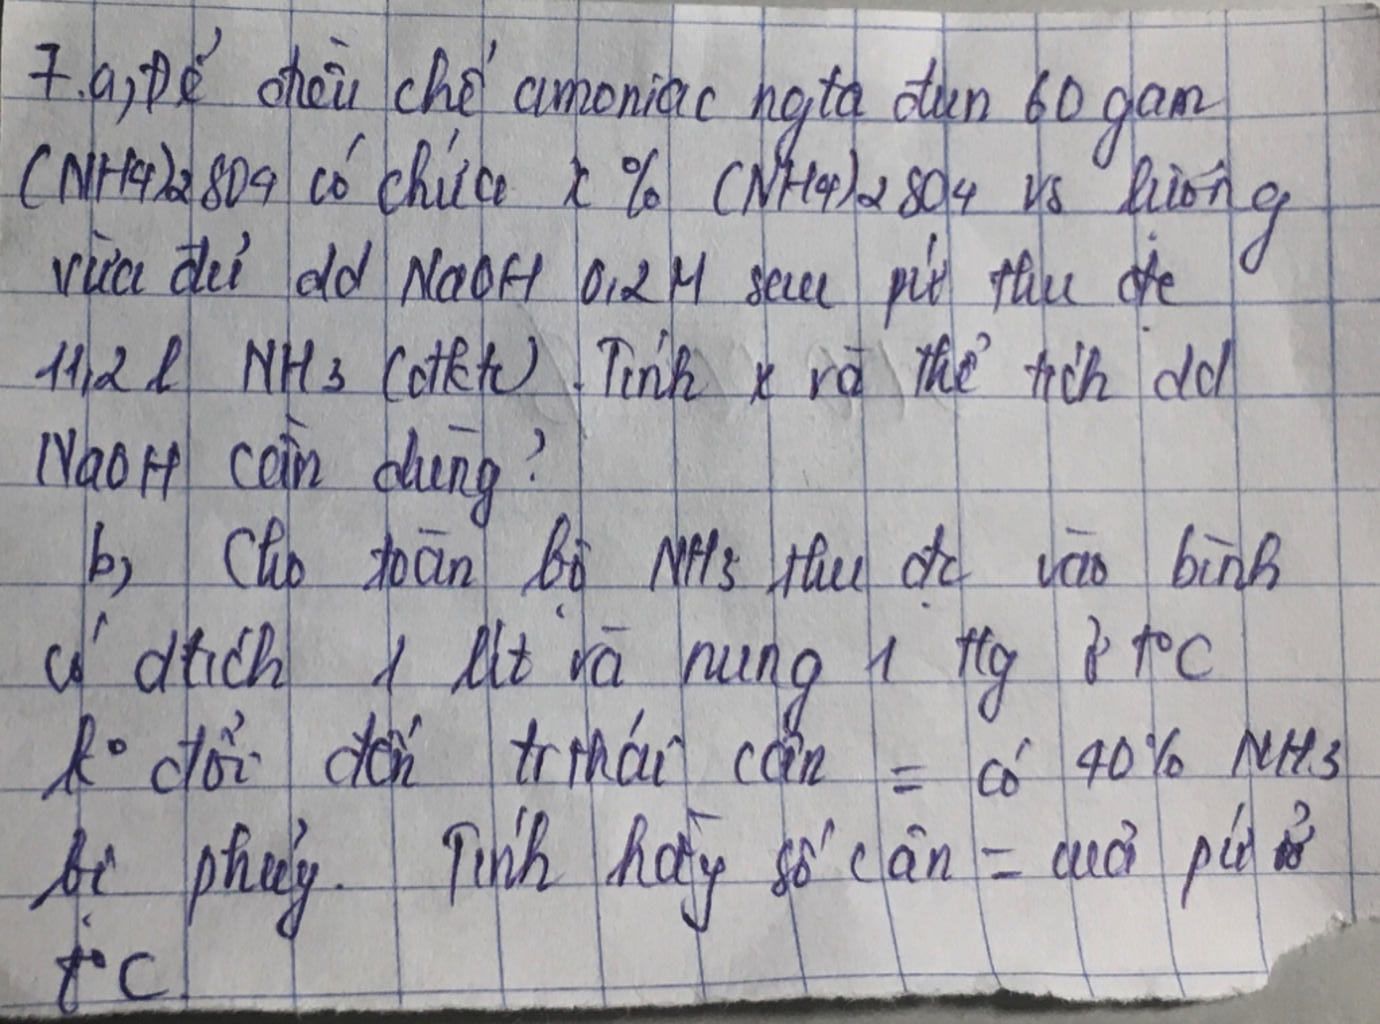 7.a, Để điều chế amoniac ngta đun 60 gam
(NH4)2SO4 có chứa x % (NH4)2SO4 vs lượng
vừa đủ dd NaOH 0,2M sau pứ thu đc
11,2 l NH3 (đktc). Tính x và thể tích dd
NaOH cần dùng?
b, Cho toàn bộ NH3 thu đc vào bình
có dtích 1 lít và nung 1 tg ở t°C
k° đổi đến tr thái cân = có 40% NH3
bị phhủy. Tính hằg số cân = của pứ ở
t°C